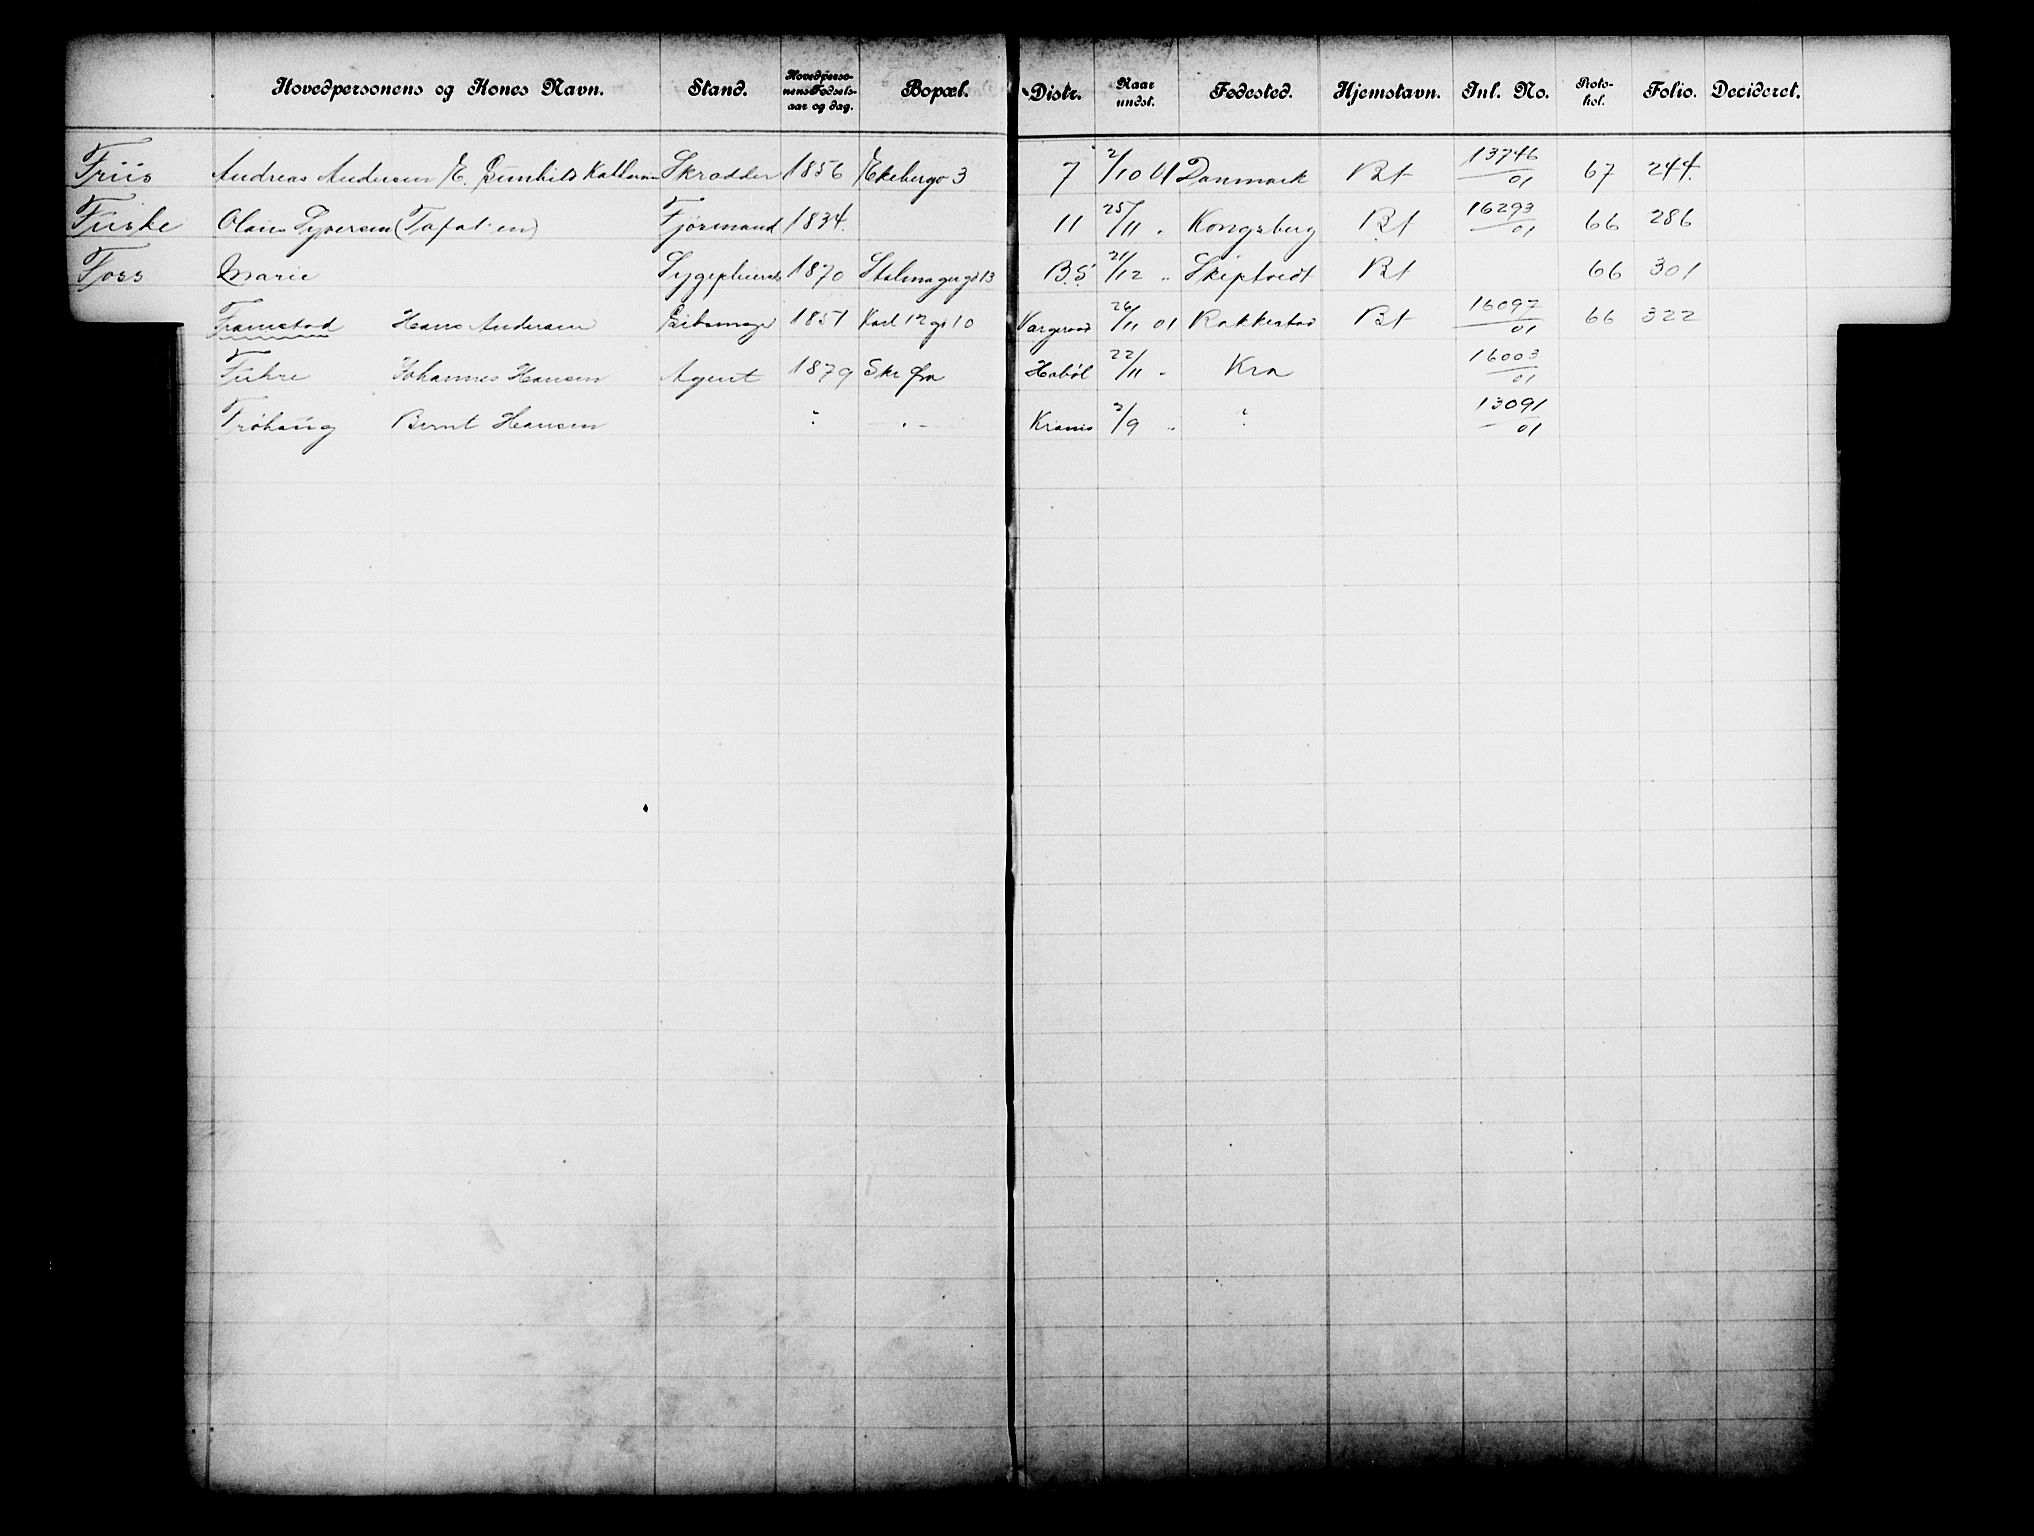 Hovedpersonens og Kones Navn. Stand. Hovedperso-nens Fødsels-aar og dag. Bopæl. Distr. Naar undst. Fødested. Hjemstavn. Inl. No. Proto-kol. Folio. Decideret.
Friis Andreas Andersen /E. Gunhild Skrædder 1856 Ekebergv 3 7 2/10 01 Danmark Bt 13746/01 67 244.
Fuske Olaus Syversen Fjørmand 1834. 11 25/11 " Kongsberg Bt 16293/01 66 286
Foss Marie Sygepleierske 1870 Stolmagergd 13 B.S. 21/12 " Skiptvedt Bt 66 301
Framstad Hans Andersen 1851 Karl 12 gd 10 26/11 01 Rakkestad Bt 16097/01 66 322
Fuhre Johannes Hansen Agent 1879 Hobøl 22/11 " Kra 16003/01
Frøhaug Bernt Hansen ? - " - 2/9 " ? 13091/01